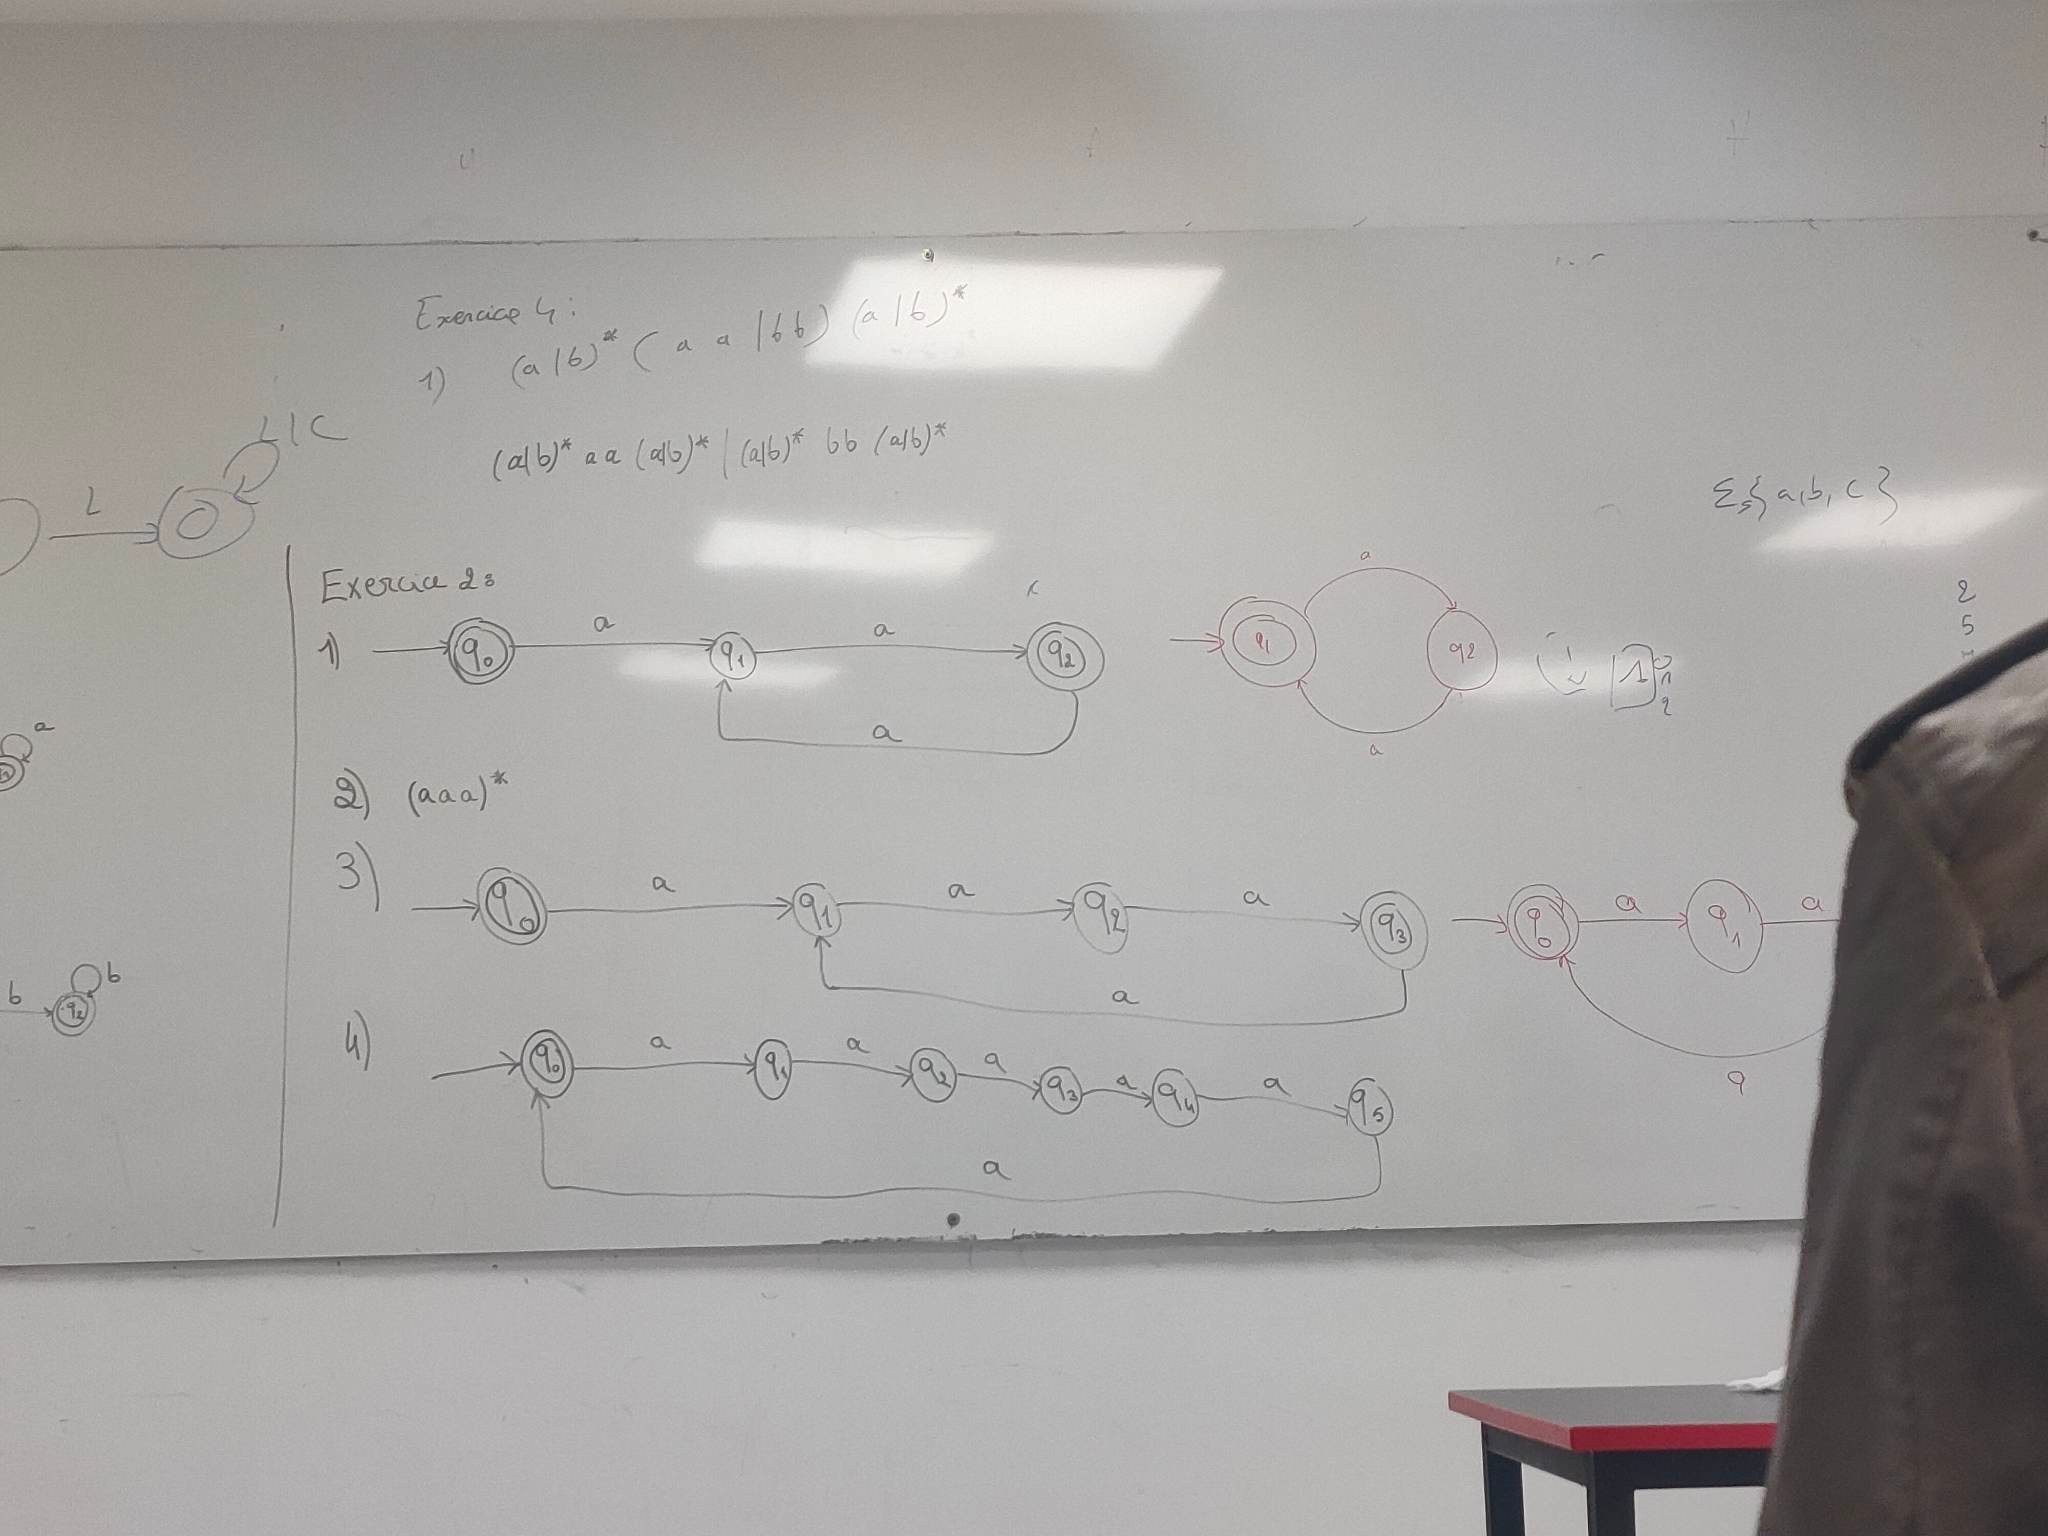 Exercice 4 :
1) (a|b)* ( a a | b b ) (a|b)*
(a|b)* aa (a|b)* | (a|b)* bb (a|b)*
L|C
L
Σ={a,b,c}
Exercice 2:
1) q0 a q1 a q2
a
a
q1 q2
a
1
2
5
2) (aaa)*
a
3) q0 a q1 a q2 a q3
a
q0 a q1 a
a
b q2 b
4) q0 a q1 a q2 a q3 a q4 a q5
a